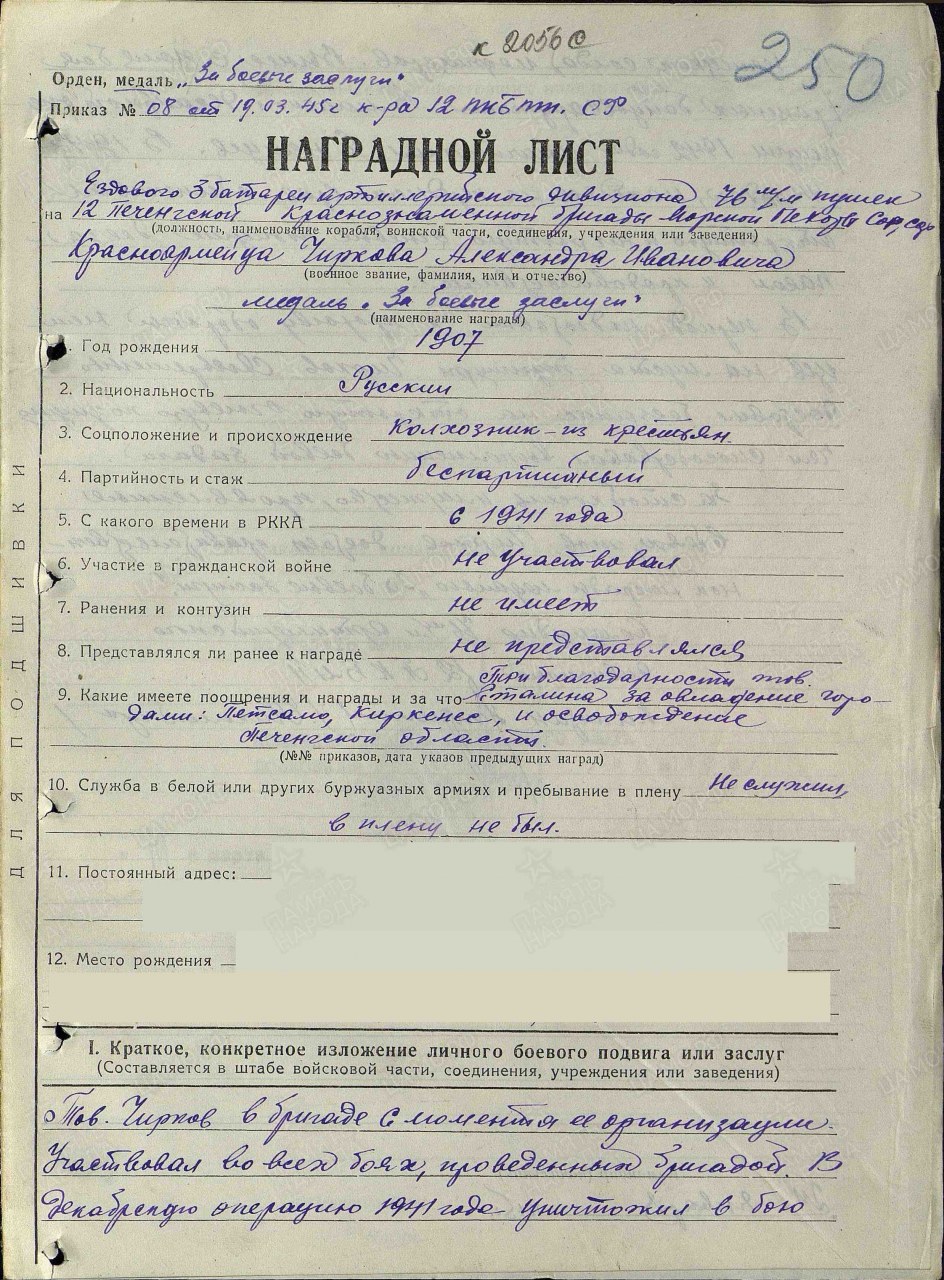 к 2056с
250
Орден, медаль „За боевые заслуги"
Приказ № 08 от 19.03.45г к-ра 12 ПКБМП. СФ
НАГРАДНОЙ ЛИСТ
Ездового 3 батареи артиллерийского дивизиона 76 м/м пушек
на 12 Печенгской Краснознаменной бригады Морской Пехоты Сев,
(должность, наименование корабля, воинской части, соединения, учреждения или заведения)
Красноармейца Чиркова Александра Ивановича
(военное звание, фамилия, имя и отчество)
медаль „За боевые заслуги"
(наименование награды)
. Год рождения 1907
2. Национальность Русский
3. Соцположение и происхождение Колхозник – из крестьян.
4. Партийность и стаж беспартийный
5. С какого времени в РККА с 1941 года
6. Участие в гражданской войне не участвовал
7. Ранения и контузии не имеет
8. Представлялся ли ранее к награде не представлялся
Три благодарности тов.
9. Какие имеете поощрения и награды и за что Сталина за овладение горо-
дами: Петсамо, Киркенес, и освобождение
Печенгской области.
(№№ приказов, дата указов предыдущих наград)
10. Служба в белой или других буржуазных армиях и пребывание в плену Не служил,
в плену не был.
11. Постоянный адрес:
12. Место рождения
ДЛЯ ПОДШИВКИ
I. Краткое, конкретное изложение личного боевого подвига или заслуг
(Составляется в штабе войсковой части, соединения, учреждения или заведения)
Тов. Чирков в бригаде с момента ее организации.
Участвовал во всех боях, проведенных бригадой. В
декабрскую операцию 1941 года уничтожил в бою